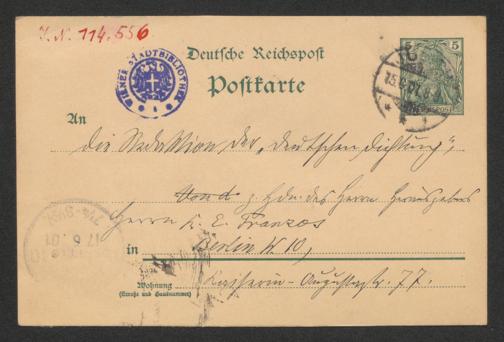 I. N. 114.556
WIENER STADTBIBLIOTHEK
Deutsche Reichspost
Postkarte
5 5
15.6.01
An
die Redaktion der „Deutschen Dichtung“,
z. Hdn. des Herrn Herausgebers
Herrn K. E. Franzos
in Berlin W 10,
Wohnung
(Straße und Hausnummer)
Kaiserin-Augustastr. 77.
17.6.01